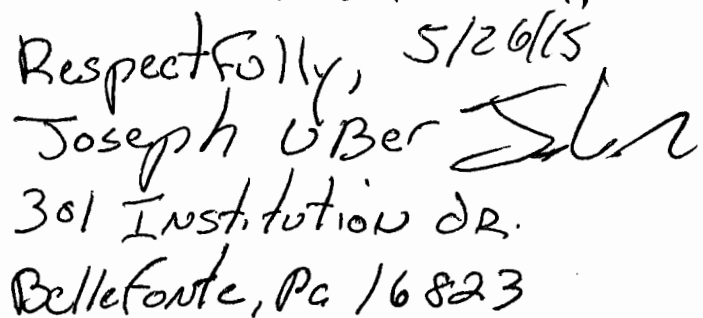 Respectfully, 5/26/15
Joseph UBer
301 Institution dr.
Bellefonte, Pa 16823